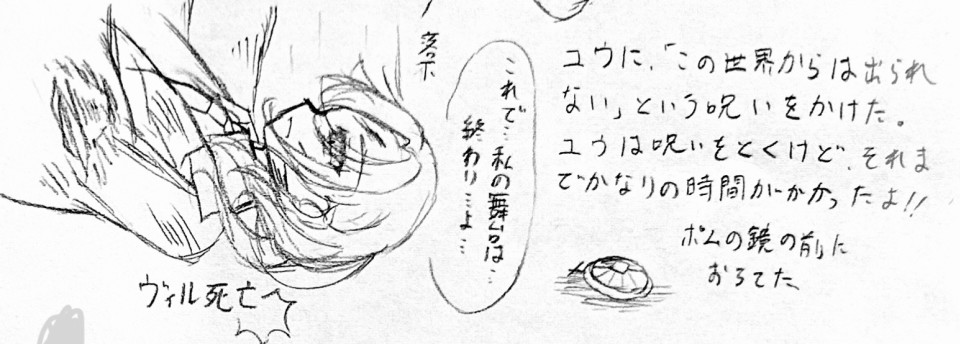 ユウに、「この世界からは出られ
ない」という呪いをかけた。
ユウは呪いをとくけど、それま
でかなりの時間がかかったよ!!
ポムの鏡の前に
おちてた、
落下
これで…私の舞台は…
終わり…よ…
ヴィル死亡